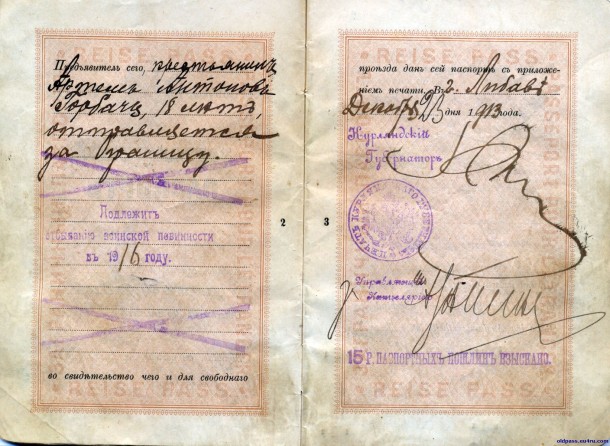 Предъявитель сего, крестьянинъ
Артемъ Антоновъ
Горбачъ, 18 лѣтъ,
отправляется
за границу.
Подлежитъ
отбыванію воинской повинности
въ 1916 году.
во свидѣтельство чего и для свободнаго
2
3
проѣзда данъ сей паспортъ съ приложе-
ніемъ печати. Въ г. Либавѣ
Декабря 23 дня 1913 года.
Курляндскій
Губернаторъ
Управляющій
Канцеляріею
15 Р. ПАСПОРТНЫХЪ ПОШЛИНЪ ВЗЫСКАНО.
REISE-PASS
REISE-PASS
oldpass.eu4ru.com